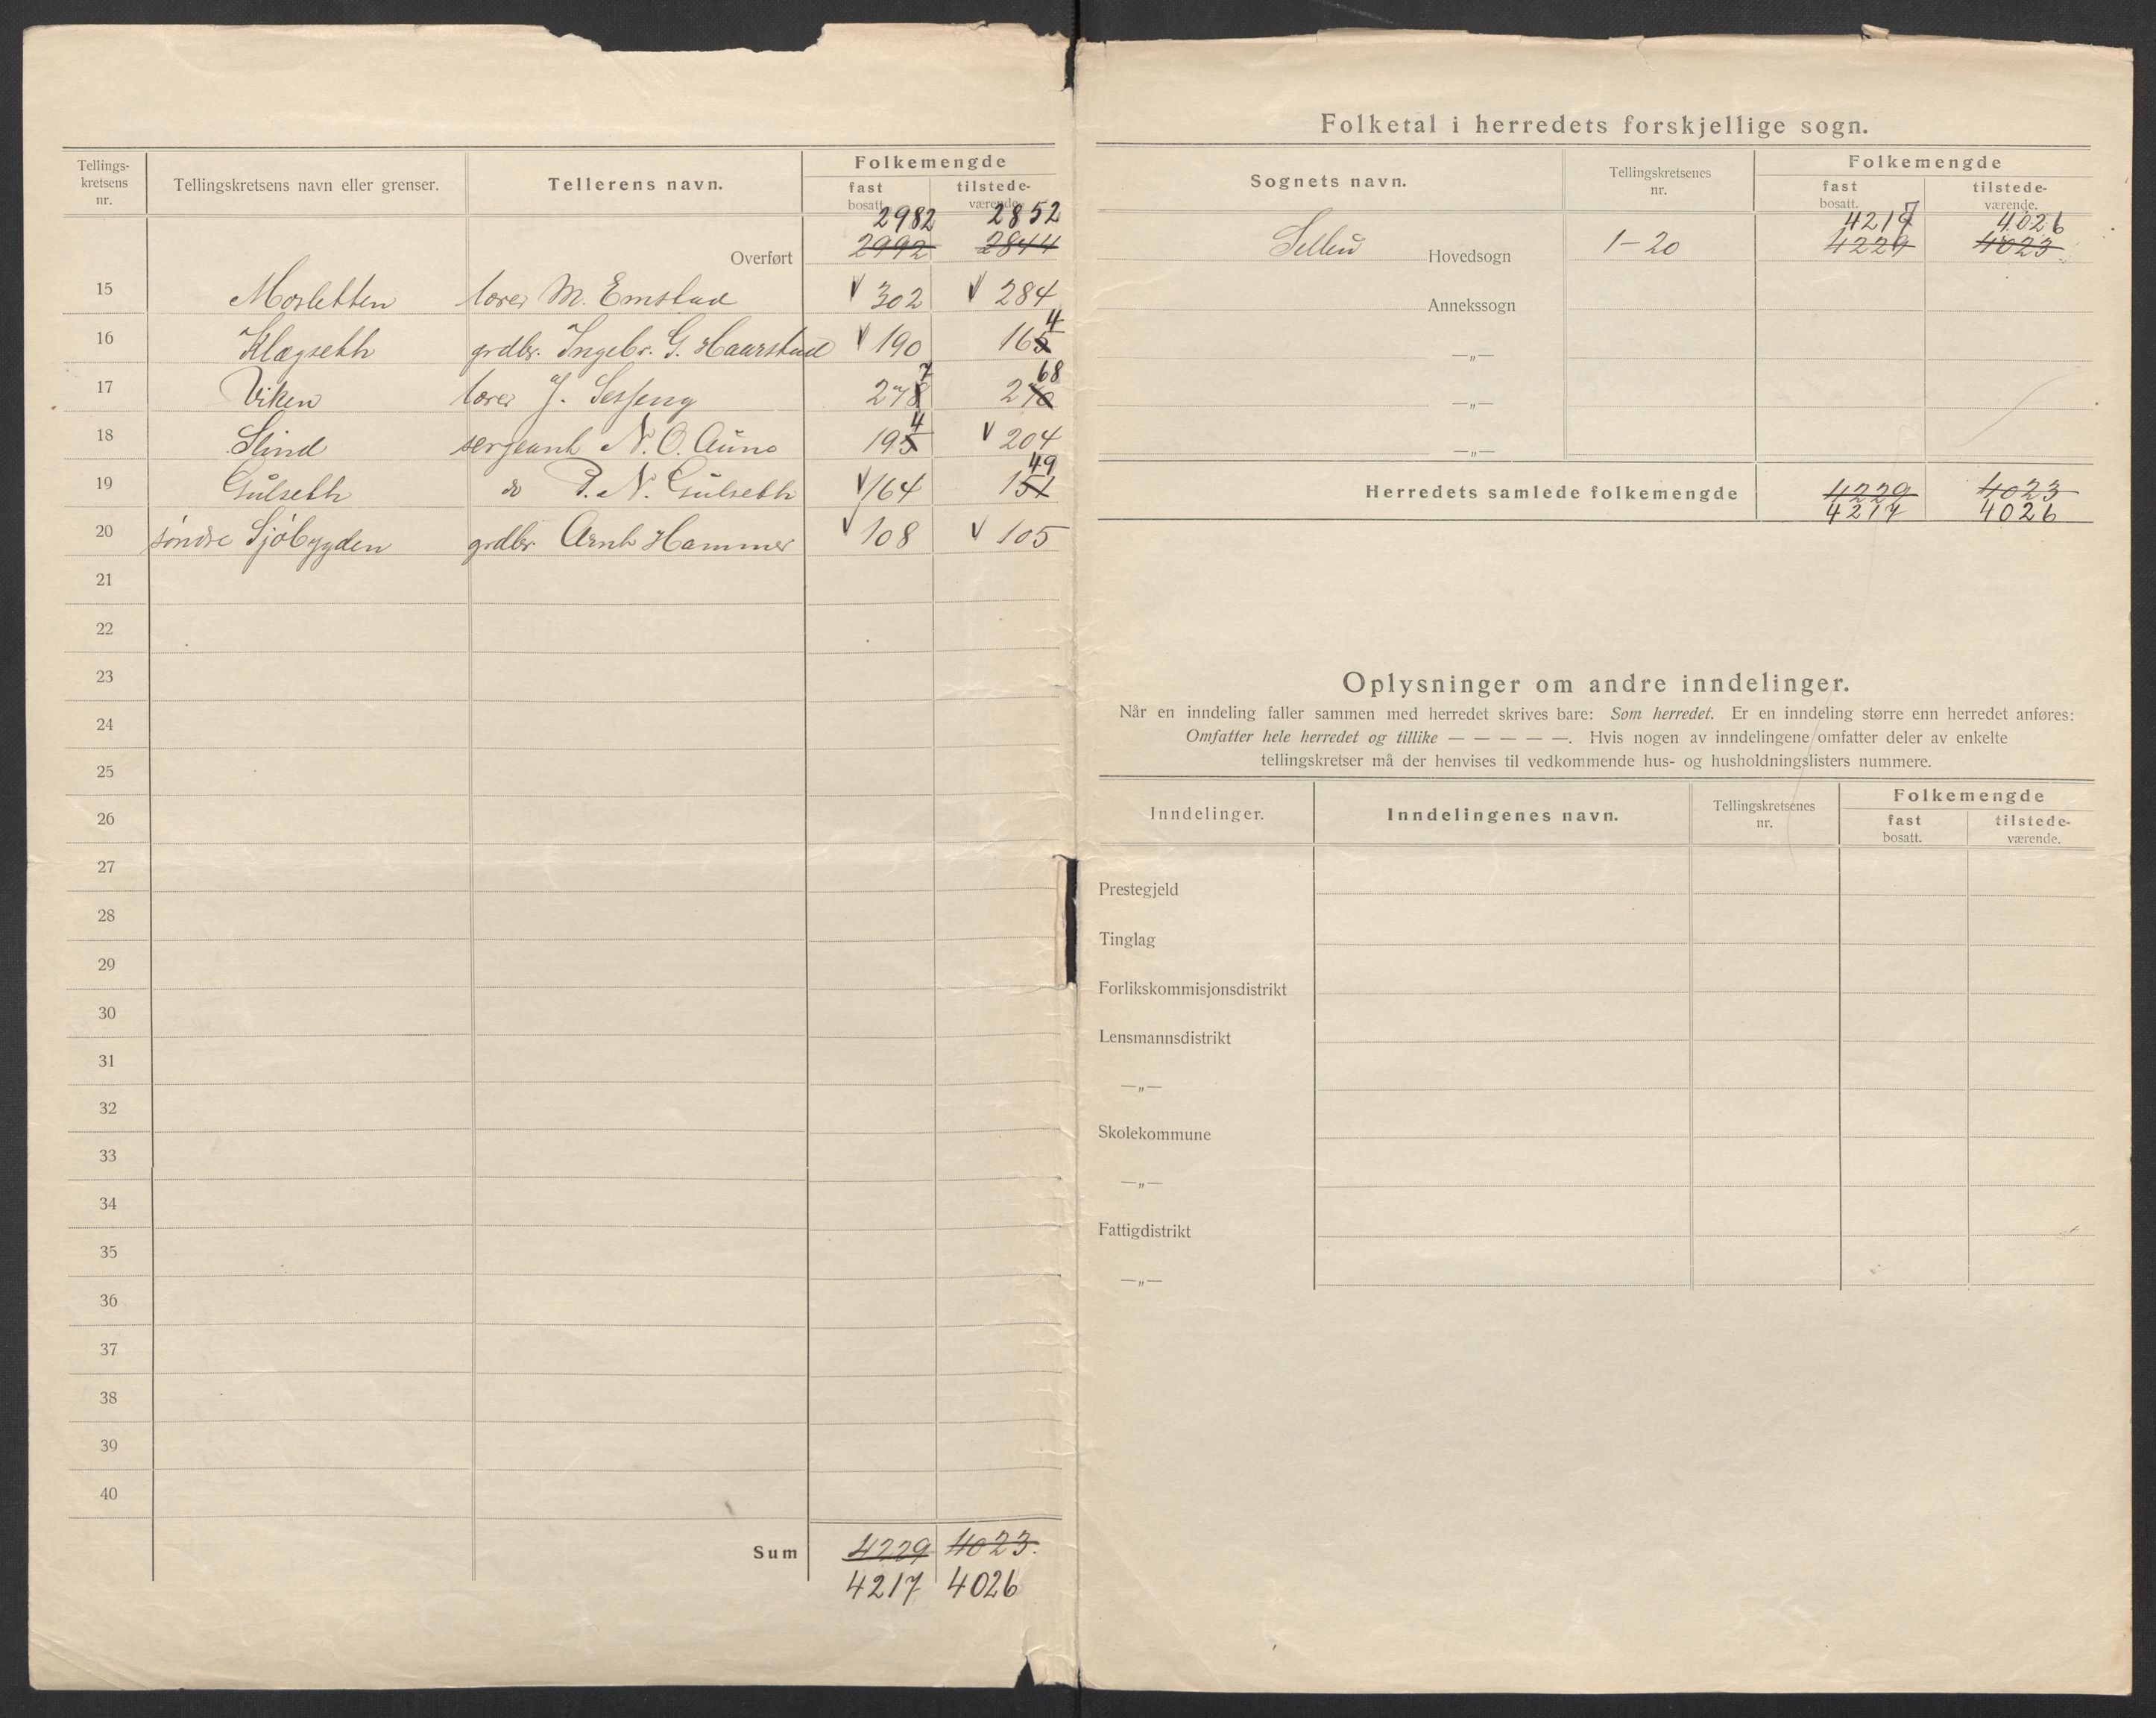 Tellings-kretsens nr. Tellingskretsens navn eller grenser. Tellerens navn. Folkemengde
fast bosatt. tilstede-værende.
2982 2852
Overført 2992 2844
15 Morletten lærer M. Emstad V 302 V 284
16 Klægseth grdbr. Ingebr. G. Haarstad V 190 165 4
17 Viken lærer J. Sesseng 278 7 270 68
18 Slind sergeant N. O. Auno 195 4 V 204
19 Gulseth do P. N. Gulseth V 164 151 49
20 søndre Sjøbygden grdbr. Arnt Hammer V 108 V 105
21
22
23
24
25
26
27
28
29
30
31
32
33
34
35
36
37
38
39
40
Sum 4229 4023.
4217 4026
Folketal i herredets forskjellige sogn.
Sognets navn. Tellingskretsenes nr. Folkemengde
fast bosatt. tilstede-værende.
4217 4026
Selbu Hovedsogn 1-20 4229 4023.
Annekssogn
—„—
—„—
—„—
Herredets samlede folkemengde 4229 4023
4217 4026
Oplysninger om andre inndelinger.
Når en inndeling faller sammen med herredet skrives bare: Som herredet. Er en inndeling større enn herredet anføres:
Omfatter hele herredet og tillike — — — — —. Hvis nogen av inndelingene omfatter deler av enkelte
tellingskretser må der henvises til vedkommende hus- og husholdningslisters nummere.
Inndelinger. Inndelingenes navn. Tellingskretsenes nr. Folkemengde
fast bosatt. tilstede-værende.
Prestegjeld
Tinglag
Forlikskommisjonsdistrikt
Lensmannsdistrikt
—„—
Skolekommune
—„—
Fattigdistrikt
—„—